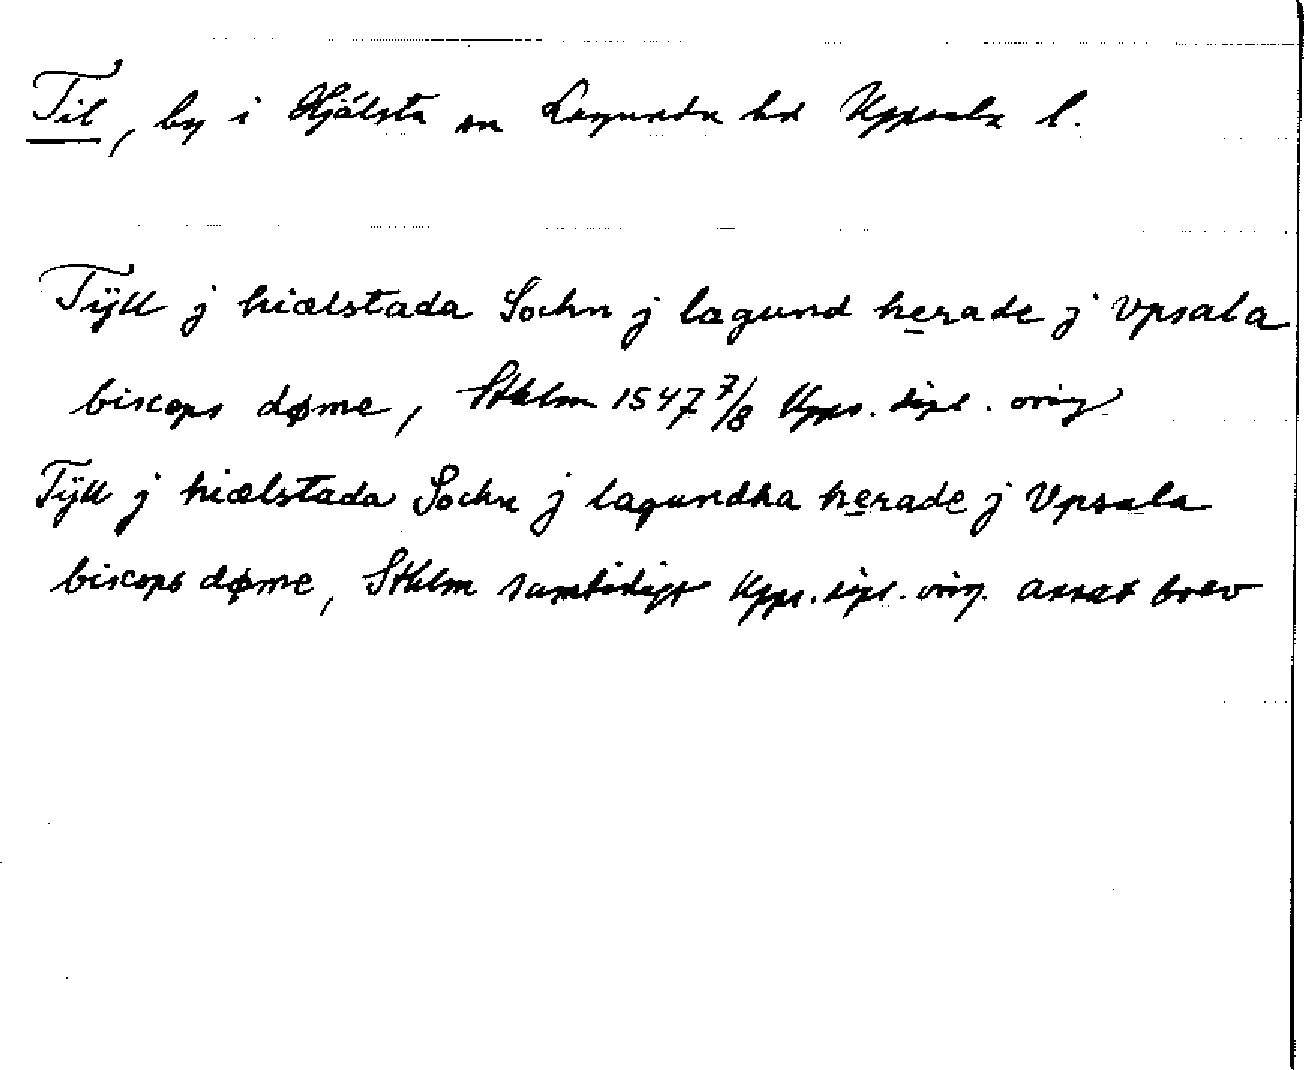 Til, by i Hjälsta sn Lagunda hd Uppsala l.
Tÿll j hiælstada Sochn j lagund herade j Vpsala
biscops døme, Sthlm 1547 7/8 Upps. dipl. orig
Tÿll j hiælstada Sochn j lagundha herade j Vpsala
biscops døme, Sthlm samtidigt Upps. dipl. orig. annat brev